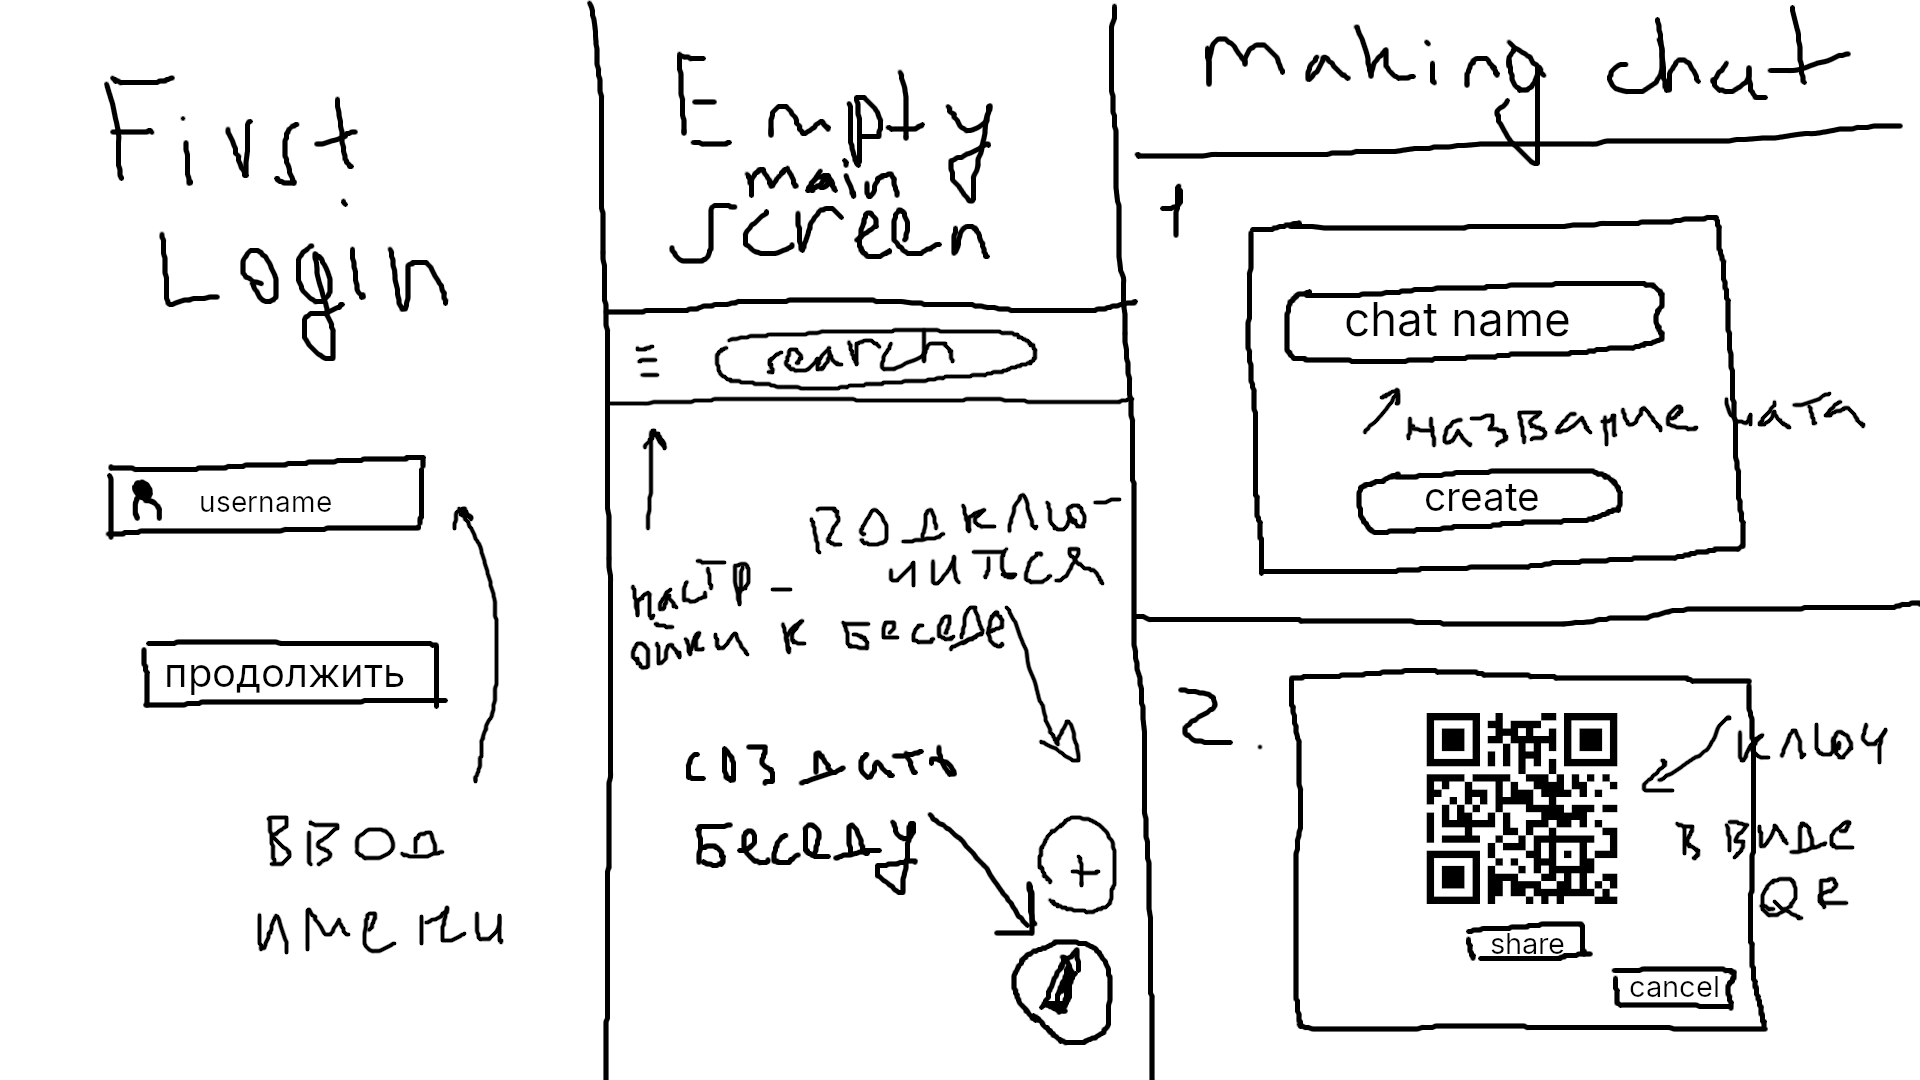 First
Login
username
продолжить
ввод
имени
Empty
main
screen
search
подклю-
читься
настр-
ойки к беседе
создать
беседу
+
making chat
1
chat name
название чата
create
2.
ключ
в виде
QR
share
cancel